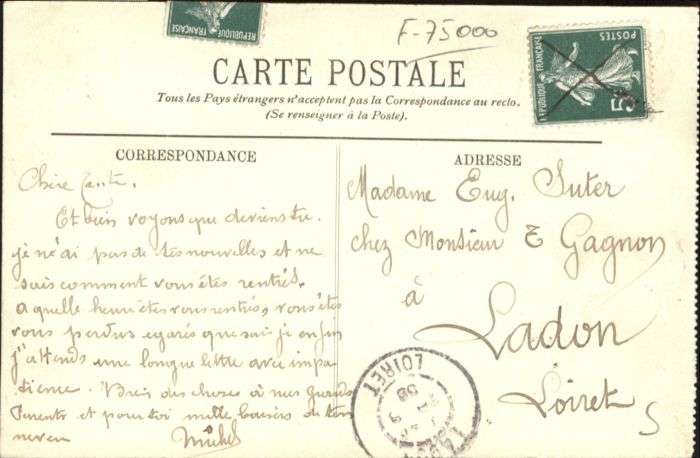 F-75000
REPUBLIQUE FRANÇAISE
REPUBLIQUE FRANÇAISE
POSTES
5c
CARTE POSTALE
Tous les Pays étrangers n'acceptent pas la Correspondance au recto.
(Se renseigner à la Poste).
CORRESPONDANCE
Chère Tante.
Et bien voyons que deviens tu.
je n'ai pas de tes nouvelles et ne
sais comment vous êtes rentrés.
a quelle heure êtes vous rentrés, vous êtes
vous perdus egarés que sais je enfin
j'attends une longue lettre avec impa
tience. Bien des choses à mes grands
Parents et pour toi mille baisers de ton
neveu
Michel
ADRESSE
Madame Eug. Suter
chez Monsieur E Gagnon
à
Ladon
Loiret
LOIRET